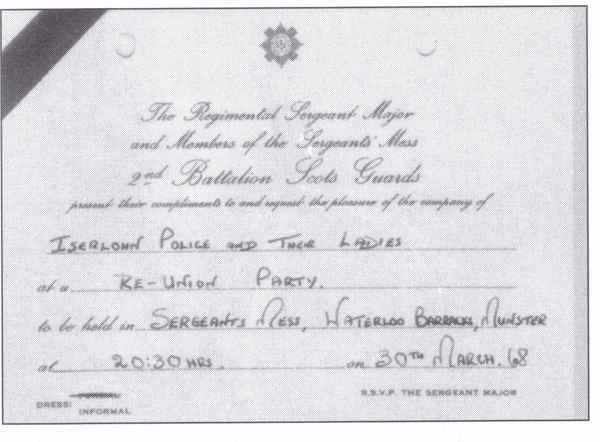 The Regimental Sergeant Major
and Members of the Sergeants' Mess
2nd Battalion Scots Guards
present their compliments to and request the pleasure of the company of
ISERLOHN POLICE AND THEIR LADIES
at a RE-UNION PARTY.
to be held in SERGEANTS MESS, WATERLOO BARRACKS, MUNSTER
at 20:30 HRS. on 30TH MARCH. 68
DRESS: R.S.V.P. THE SERGEANT MAJOR
INFORMAL